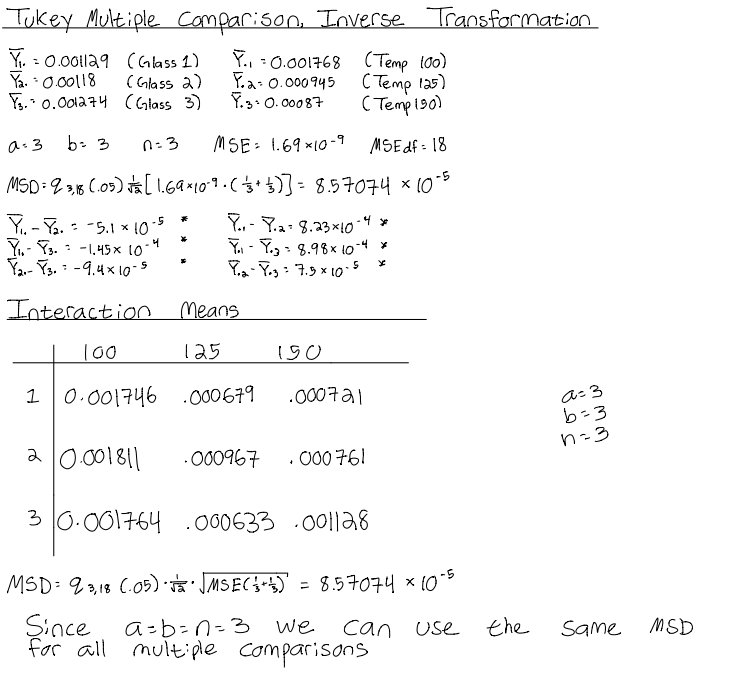 Tukey Multiple Comparison, Inverse Transformation
Ȳ1. = 0.001129 (Glass 1) Ȳ.1 = 0.001768 (Temp 100)
Ȳ2. = 0.00118 (Glass 2) Ȳ.2 = 0.000945 (Temp 125)
Ȳ3. = 0.001274 (Glass 3) Ȳ.3 = 0.00087 (Temp 150)
a=3 b=3 n=3 MSE = 1.69×10⁻⁹ MSEdf = 18
MSD = q3,18 (.05) 1/√2 [1.69×10⁻⁹ · (1/3 + 1/3)] = 8.57074 × 10⁻⁵
Ȳ1. - Ȳ2. = -5.1 × 10⁻⁵ * Ȳ.1 - Ȳ.2 = 8.23×10⁻⁴ *
Ȳ1. - Ȳ3. = -1.45 × 10⁻⁴ * Ȳ.1 - Ȳ.3 = 8.98×10⁻⁴ *
Ȳ2. - Ȳ3. = -9.4×10⁻⁵ * Ȳ.2 - Ȳ.3 = 7.5×10⁻⁵ *
Interaction Means
100 125 150
1 0.001746 .000679 .000721
2 0.001811 .000967 .000761
3 0.001764 .000633 .001128
a=3
b=3
n=3
MSD = q3,18 (.05) · 1/√2 · √MSE(1/3+1/3) = 8.57074 × 10⁻⁵
Since a=b=n=3 we can use the same MSD
for all multiple comparisons